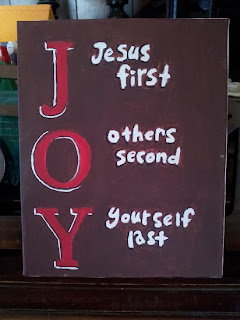 J Jesus
first
O others
second
Y yourself
last